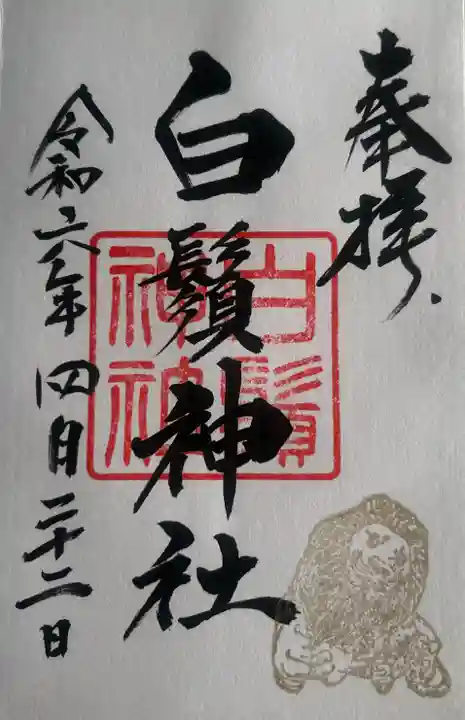 奉拝
白鬚神社
白鬚神社
令和六年四月二十二日